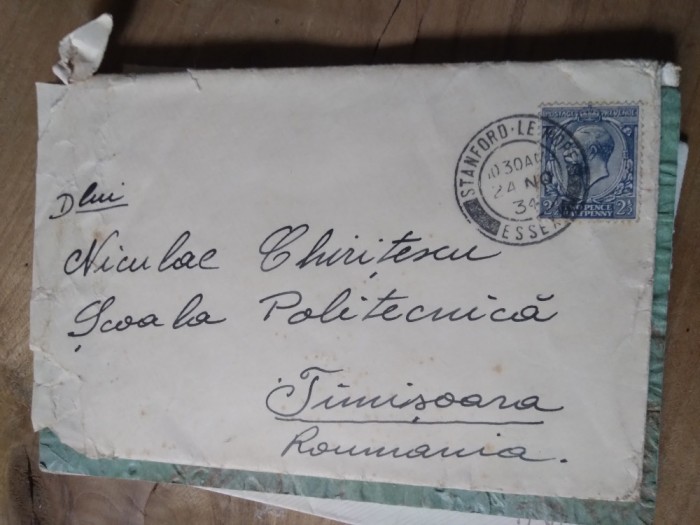 STANFORD-LE-HOPE
10 30 AM
24 NO
34
ESSEX
POSTAGE REVENUE
TWO PENCE
HALFPENNY
2½
Dlui
Niculae Chirițescu
Școala Politecnică
Timișoara
Roumania.